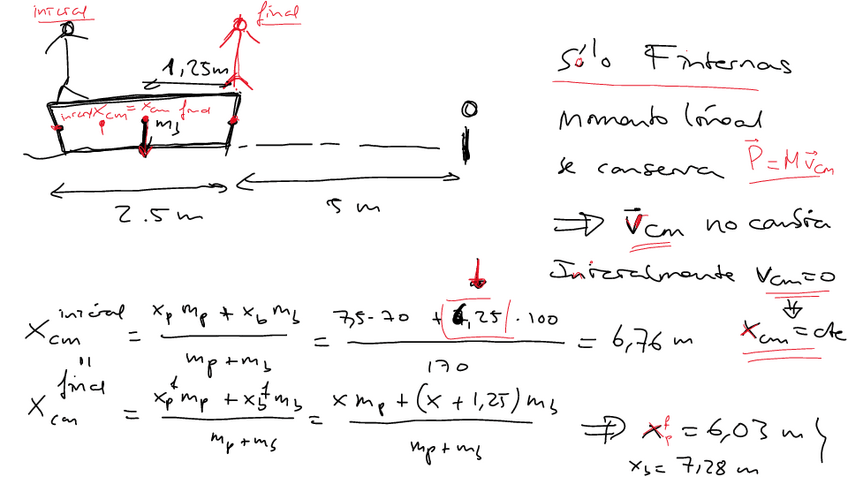 inicial
final
1,25m
inicial x_cm = x_cm final
m_b
2.5 m
5 m
Sólo Finternas
Momento lineal
se conserva P⃗ = M v⃗_cm
⇒ v⃗_cm no cambia
Inicialmente v_cm = 0
⇓
x_cm = cte
x_cm^inicial = (x_p m_p + x_b m_b) / (m_p + m_b) = (7,5 · 70 + 6,25 · 100) / 170 = 6,76 m
"
x_cm^final = (x_p^f m_p + x_b^f m_b) / (m_p + m_b) = (x m_p + (x + 1,25) m_b) / (m_p + m_b)
⇒ x_p^f = 6,03 m }
x_b = 7,28 m